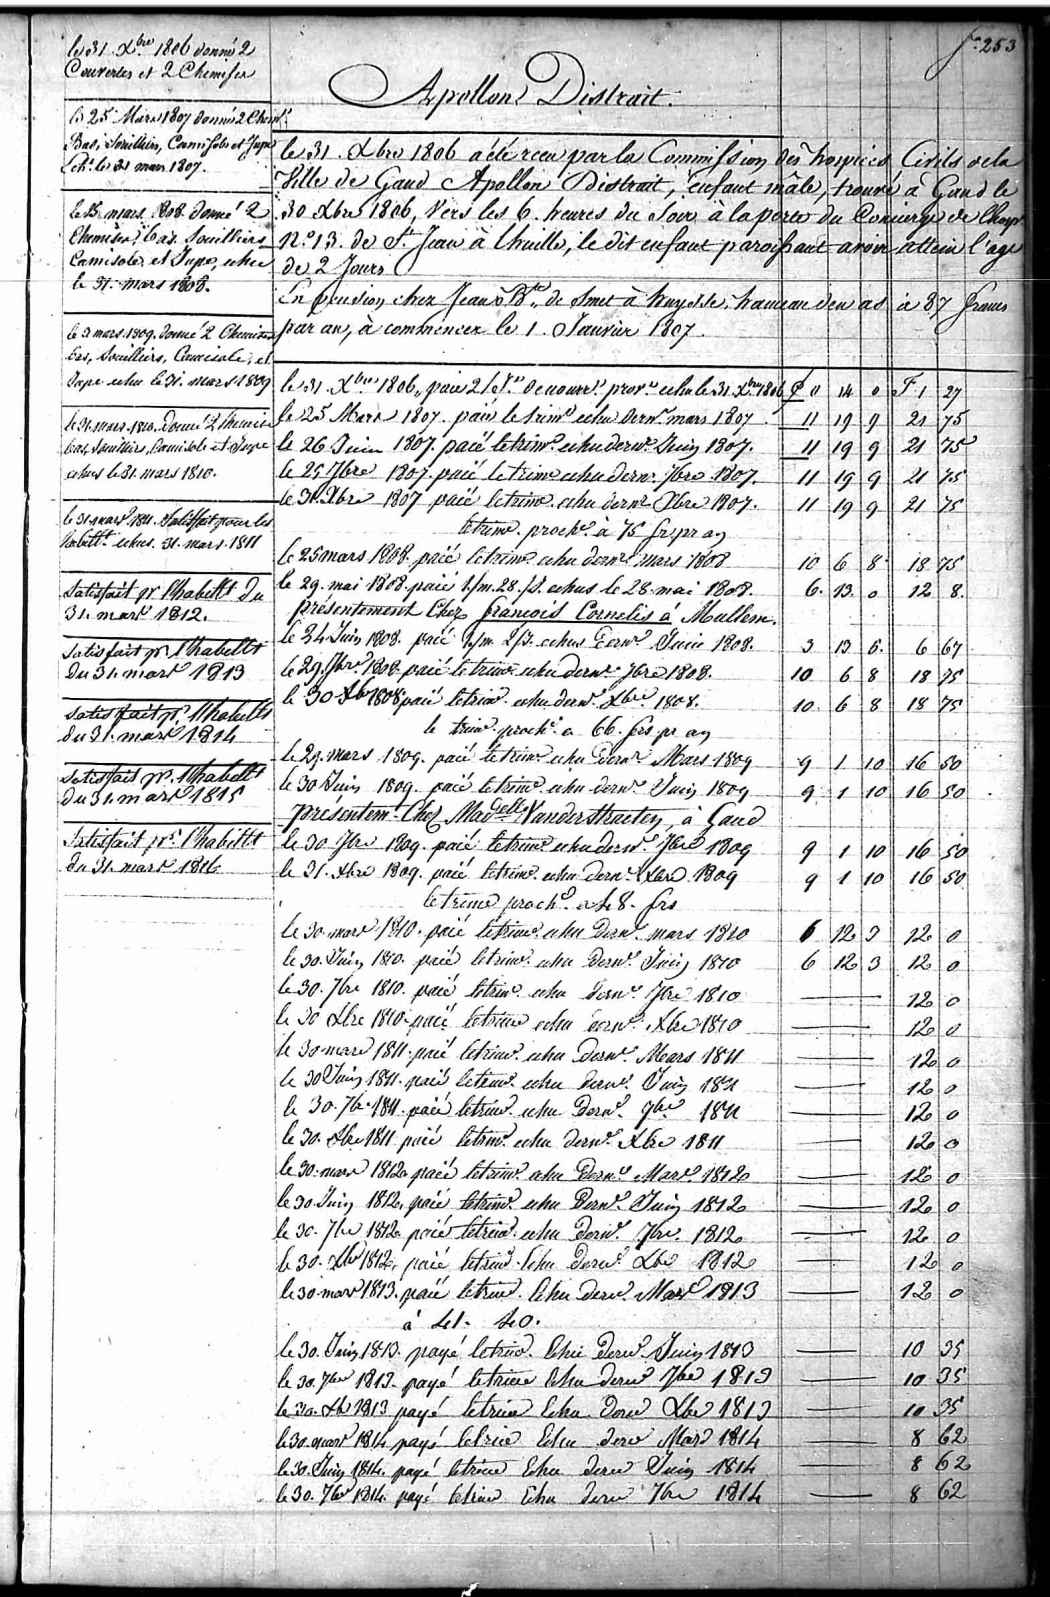 fo. 253
Apollon Distrait.
le 31 Xbre 1806 donné 2
Couvertes et 2 Chemises
le 25 Mars 1807 donné 2 Chemis
Bas, Souilliers, Camisole et Jupe
Ech. le 31 mars 1807.
le 25 mars 1808 donné 2
Chemises, bas, Souilliers
Camisole, et Jupe, echu
le 31 mars 1808.
le 31 mars 1809. donné 2 Chemises
bas, Souilliers, Camisole, et
Jupe echu le 31. mars 1809
le 31. mars 1810. donné 2 Chemis
bas, Souillier, Camisole et Jupe
echus le 31 mars 1810.
le 31 mars 1811. Satisfait pour les
habittts echus 31. mars. 1811
Satisfait pr l'habittt du
31. mars 1812.
Satisfait pr l'habittt
du 31. mars 1813
Satisfait pr. l'habittt
du 31. mars 1814
Satisfait pr. l'habittt
du 31. mars 1815
Satisfait pr. l'habittt
du 31. mars 1816
le 31. Xbre 1806 a été recu par la Commission des hospices Civils de la
Ville de Gand Apollon Distrait, enfant mâle, trouvé à Gand le
30 Xbre 1806, Vers les 6. heures du Soir à la porte du Concierge de l'hospe
No. 13. de St. Jean à l'huille, le dit enfant paroissant avoir attein l'age
de 2 Jours
En pension chez Jean Bte de Smet à huysse, hameau den as à 87 francs
par an, à commencer le 1. Janvier 1807.
le 31. Xbre 1806, paié 2 Js de nourre prove echu le 31. Xbre 1806 £ 0 14 0 F 1 27
le 25 Mars 1807. paié le trime echu derne mars 1807. 11 19 9 21 75
le 26 Juin 1807. paié le trime echu derne Juin 1807. 11 19 9 21 75
le 29 7bre 1807. paié le trime echu derne 7bre 1807. 11 19 9 21 75
le 31. Xbre 1807 paié le trime echu derne Xbre 1807. 11 19 9 21 75
le trime. proche. à 75 fs pr an
le 25 mars 1808. paié le trime echu derne mars 1808 10 6 8 18 75
le 29. mai 1808 paié 1/m. 28. /J. echus le 28. mai 1808. 6. 13. 0 12 8.
présentement Chez francois Cornelis à Mullem.
le 24 Juin 1808. paié /m. 2/J. echus derne Juin 1808. 3 13 6. 6 67
le 29. 7bre 1808 paié le trime echu derne 7bre 1808. 10 6 8 18 75
le 30 Xbre 1808 paié le trime echu derne Xbre 1808. 10 6 8 18 75
le trime proche a 66. frs pr an
le 29. mars 1809. paié le trime echu derne Mars 1809 9 1 10 16 50
le 30 Juin 1809. paié le trime echu derne Juin 1809 9 1 10 16 50
présentemt Chez Madelle Vanderstraeten, à Gand
le 30 7bre 1809. paié le trime echu derne 7bre 1809 9 1 10 16 50
le 31. Xbre 1809. paié le trime. echu derne Xbre 1809 9 1 10 16 50
le trime proche. a 48. frs
le 30. mars 1810. paié le trime echu derne mars 1810 6 12 3 12 0
le 30. Juin 1810. paié le trime. echu derne Juin 1810 6 12 3 12 0
le 30. 7bre 1810. paié le trime. echu derne. 7bre 1810 12 0
le 30 Xbre 1810. paié le trime echu derne. Xbre 1810 12 0
le 30 mars 1811. paié le trime. echu derne. Mars 1811 12 0
le 30 Juin 1811. paié le trime. echu derne. Juin 1811 12 0
le 30. 7bre 1811. paié le trime. echu derne. 7bre 1811 12 0
le 30. Xbre 1811 paié le trime. echu derne. Xbre 1811 12 0
le 30 mars 1812 paié le trime. echu derne Mars 1812 12 0
le 30 Juin 1812. paié le trime. echu derne. Juin 1812 12 0
le 30. 7bre 1812 paié le trime. echu derne. 7bre. 1812 12 0
le 30. Xbre 1812. paié le trime. Echu derne. Xbre 1812 12 0
le 30 mars 1813. paié le trime. Echu derne. Mars 1813 12 0
à 41. 40.
le 30. Juin 1813. payé le trime. Echu derne. Juin 1813 10 35
le 30. 7bre 1813. payé le trime Echu derne 7bre 1813 10 35
le 30. Xbre 1813 payé le trime Echu derne Xbre 1813 10 35
le 30. mars 1814 payé le trime Echu derne Mars 1814 8 62
le 30. Juin 1814. payé le trime Echu derne Juin 1814 8 62
le 30. 7bre 1814. payé le trime Echu derne 7bre 1814 8 62